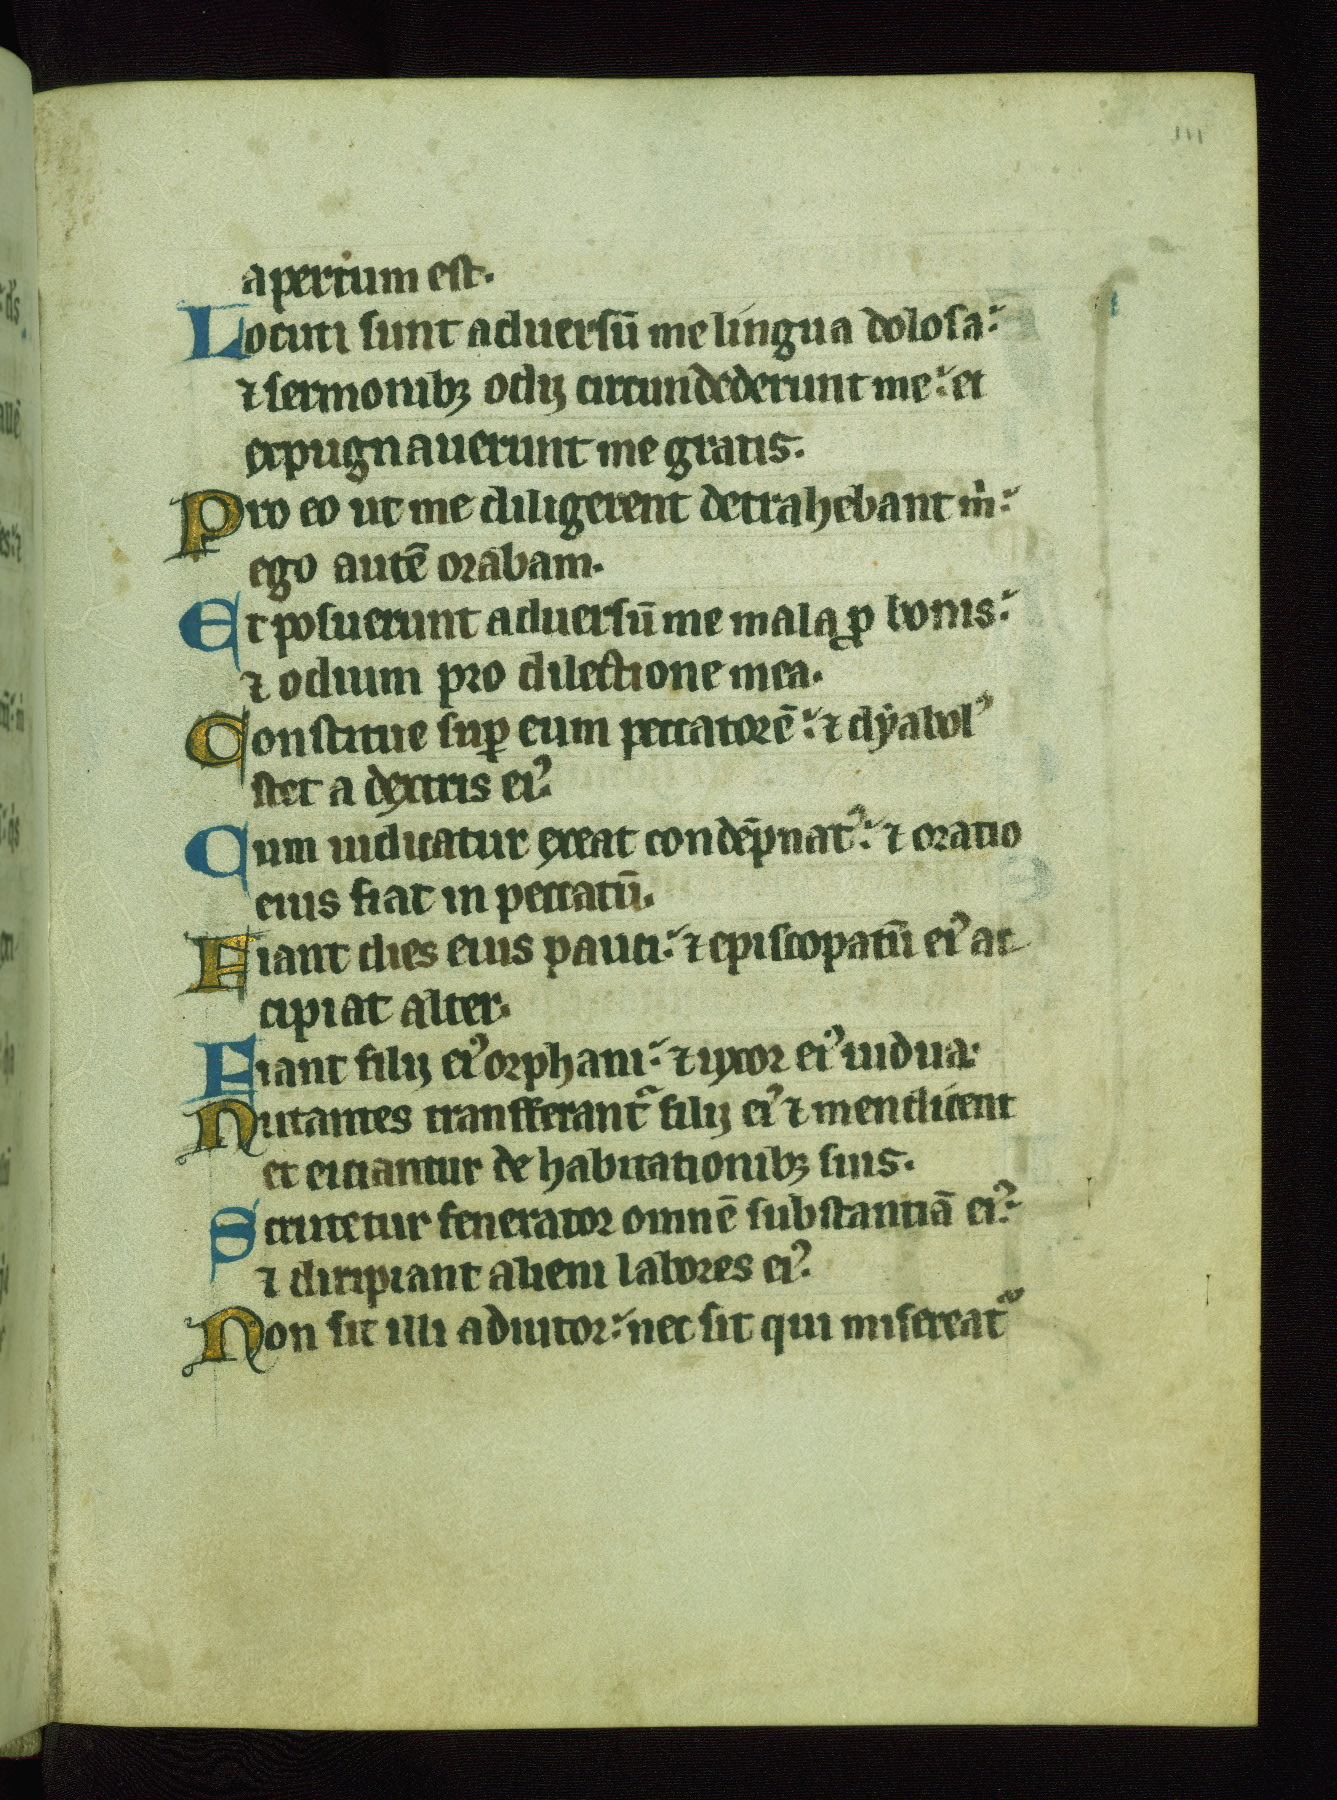 111
apertum est.
Locuti sunt aduersū me lingua dolosa:
⁊ sermonibꝫ odij circundederunt me: et
expugnauerunt me gratis.
Pro eo ut me diligerent detrahebant m̄:
ego autē orabam.
Et posuerunt aduersū me mala ꝓ bonis:
⁊ odium pro dilectione mea.
Constitue suꝑ eum peccatorē: ⁊ dyabolꝰ
stet a dextris eiꝰ.
Cum iudicatur exeat condēpnatꝰ: ⁊ oratio
eius fiat in peccatū.
Fiant dies eius pauci: ⁊ episcopatū eiꝰ ac
cipiat alter.
Fiant filij eiꝰ orphani: ⁊ uxor eiꝰ uidua.
Nutantes transferant᷑ filij eiꝰ ⁊ mendicent
et eiciantur de habitationibꝫ suis.
Scrutetur fenerator omnē substantiā eiꝰ:
⁊ diripiant alieni labores eiꝰ.
Non sit illi adiutor: nec sit qui misereat᷑